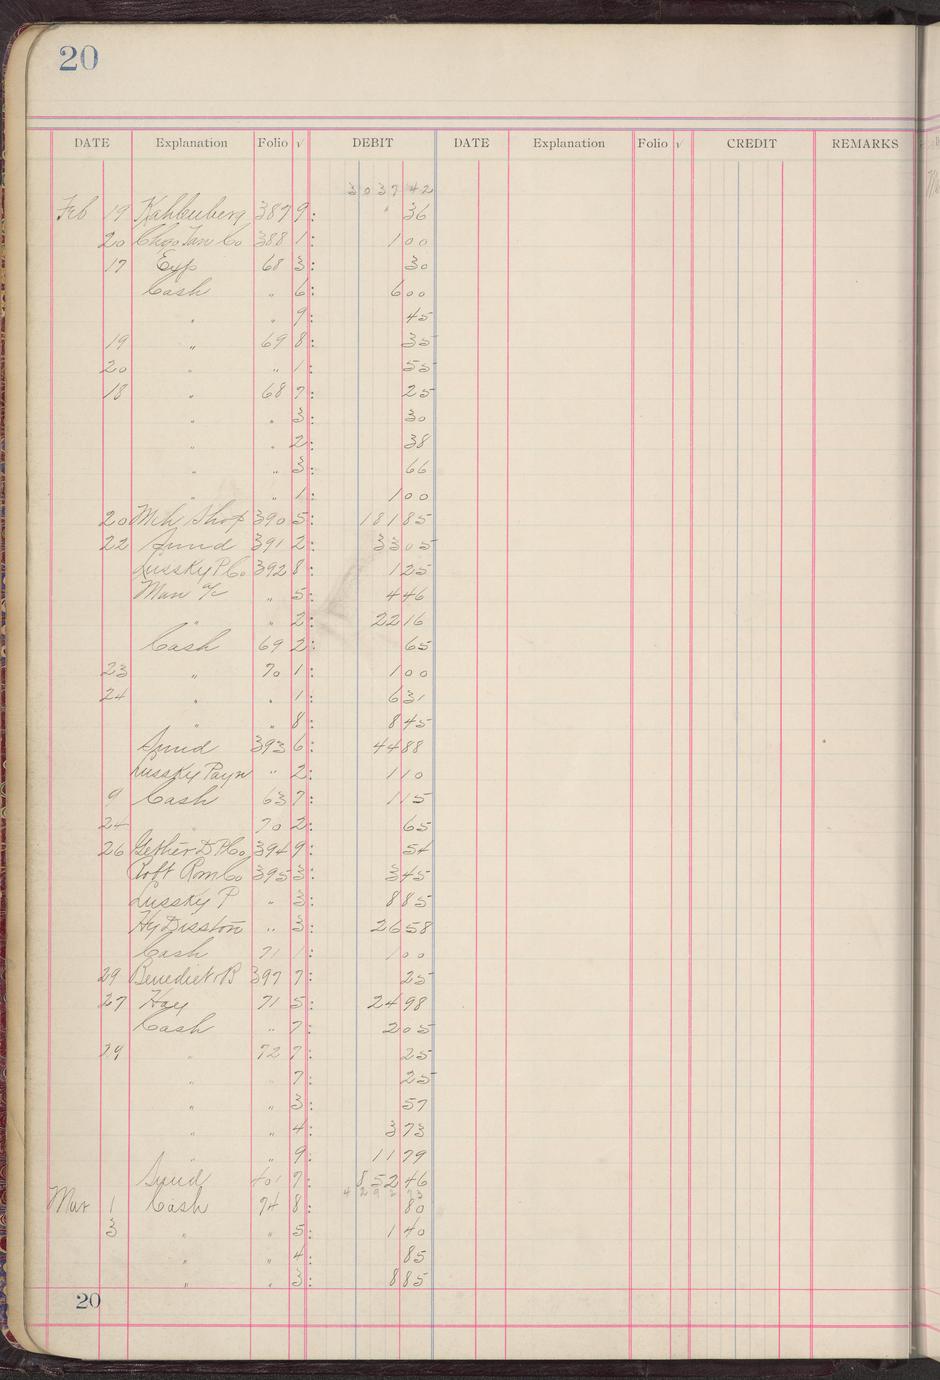 20
DATE Explanation Folio √ DEBIT DATE Explanation Folio √ CREDIT REMARKS
3037 42
Feb 19 Kahlenberg 387 9: " 36
20 Chgo Tan Co 388 1: 1 00
17 Exp 68 3: 30
Cash " 6: 6 00
" " 9: 45
19 " 69 8: 35
20 " " 1: 55
18 " 68 7: 25
" " 3: 30
" " 2: 38
" " 3: 66
" " 1: 1 00
20 Mch Shop 390 5: 181 85
22 Sund 391 2: 33 05
Lussky P Co 392 8: 1 25
Man a/c " 5: 4 46
" " 2: 22 16
Cash 69 2: 65
23 " 70 1: 1 00
24 " " 1: 6 31
" " 8: 8 45
Sund 393 6: 44 88
Lussky Payn " 2: 1 10
9 Cash 63 7: 1 15
24 70 2: 65
26 Gether D P Co 394 9: 54
Robt Rom Co 395 3: 3 45
Lussky P " 3: 8 85
Hy Disston " 3: 26 58
Cash 71 1: 1 00
29 Benedict R 397 7: 25
27 Hay 71 5: 24 98
Cash " 7: 2 05
29 " 72 7: 25
" " 7: 25
" " 3: 57
" " 4: 3 73
" " 9: 11 79
Sund 401 7: 852 46
Mar 1 Cash 74 8: 80
3 " " 5: 1 40
" " 4: 85
" " 3: 8 85
20